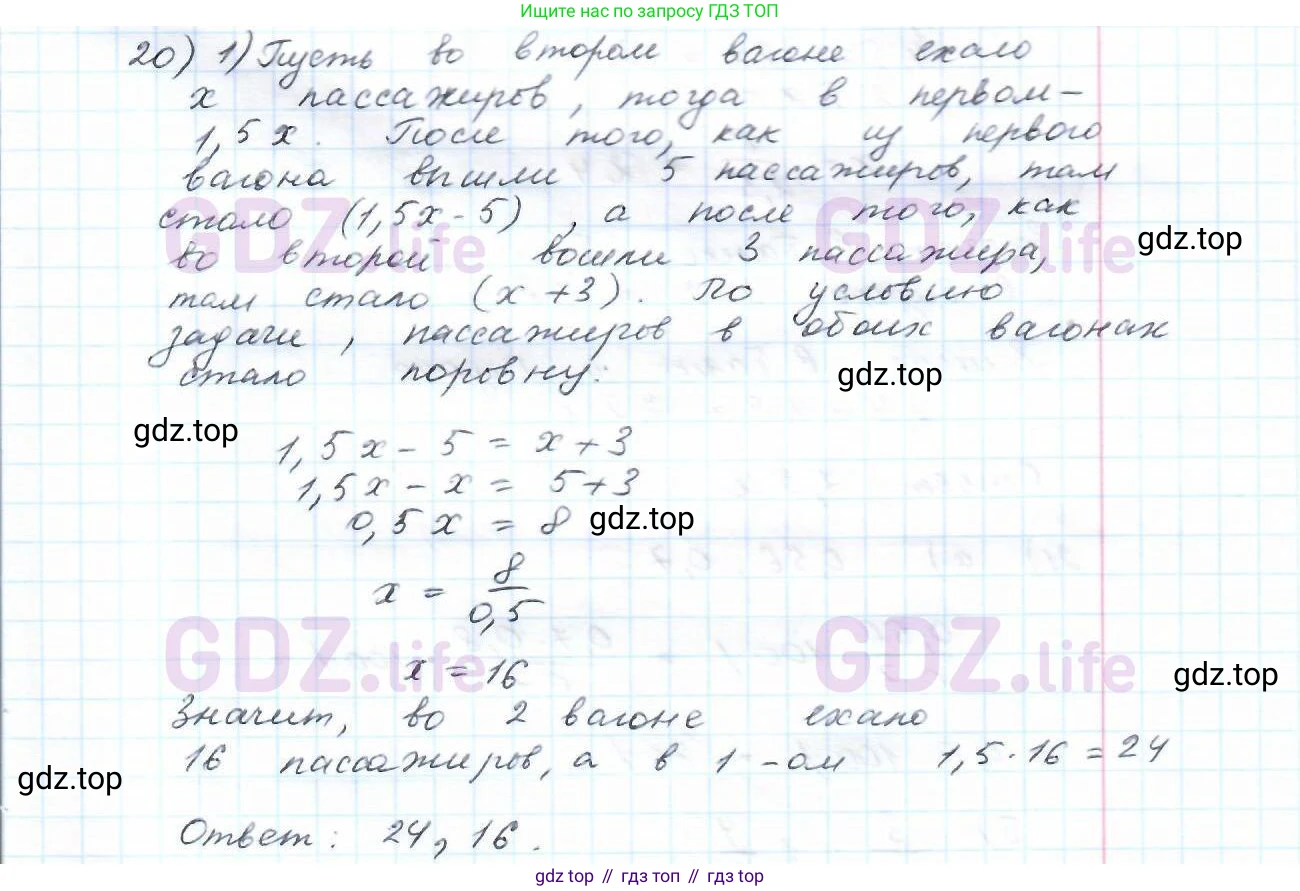 Ищите нас по запросу ГДЗ ТОП
20) 1) Пусть во втором вагоне ехало
x пассажиров, тогда в первом –
1,5x. После того, как из первого
вагона вышли 5 пассажиров, там
стало (1,5x - 5), а после того, как
во второй вошли 3 пассажира,
там стало (x + 3). По условию
задачи, пассажиров в обоих вагонах
стало поровну:
1,5x - 5 = x + 3
1,5x - x = 5 + 3
0,5x = 8
x = 8/0,5
x = 16
Значит, во 2 вагоне ехало
16 пассажиров, а в 1-ом 1,5 · 16 = 24
Ответ: 24, 16.
GDZ.life
GDZ.life
gdz.top
gdz.top
gdz.top
gdz.top
GDZ.life
GDZ.life
gdz.top
gdz.top
gdz top // гдз топ // гдз top